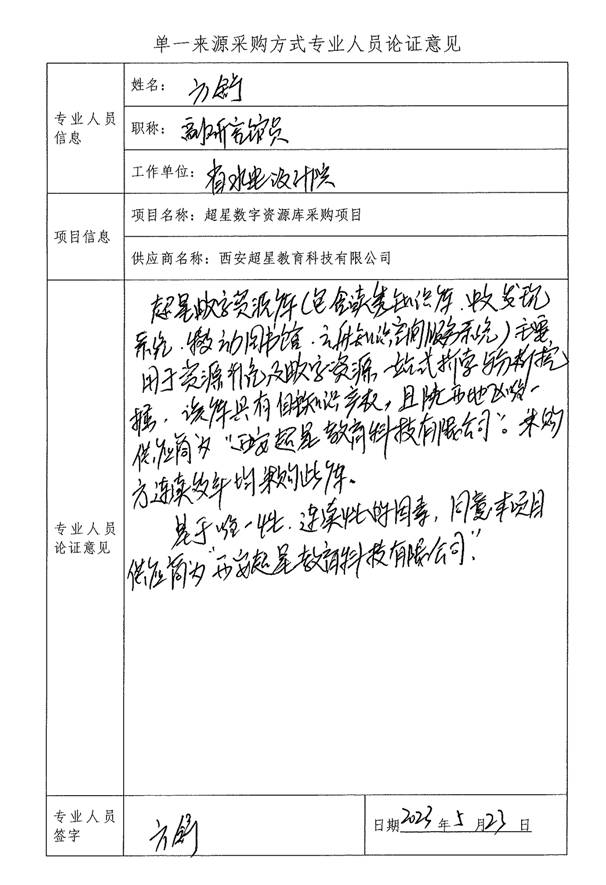 单一来源采购方式专业人员论证意见
专业人员信息
姓名：方舒
职称：副研究馆员
工作单位：省水电设计院
项目信息
项目名称：超星数字资源库采购项目
供应商名称：西安超星教育科技有限公司
专业人员论证意见
超星数字资源库（包含读秀知识库、中文发现
系统、移动图书馆、云舟知识空间服务系统）主要
用于资源补充及数字资源一站式折学与分析挖
掘，该库具有自主知识产权，且陕西地区唯一
供应商为“西安超星教育科技有限公司”。采购
方连续多年均采购此库。
基于唯一性、连续性的因素，同意本项目
供应商为“西安超星教育科技有限公司”。
专业人员签字
方舒
日期2023年5月23日